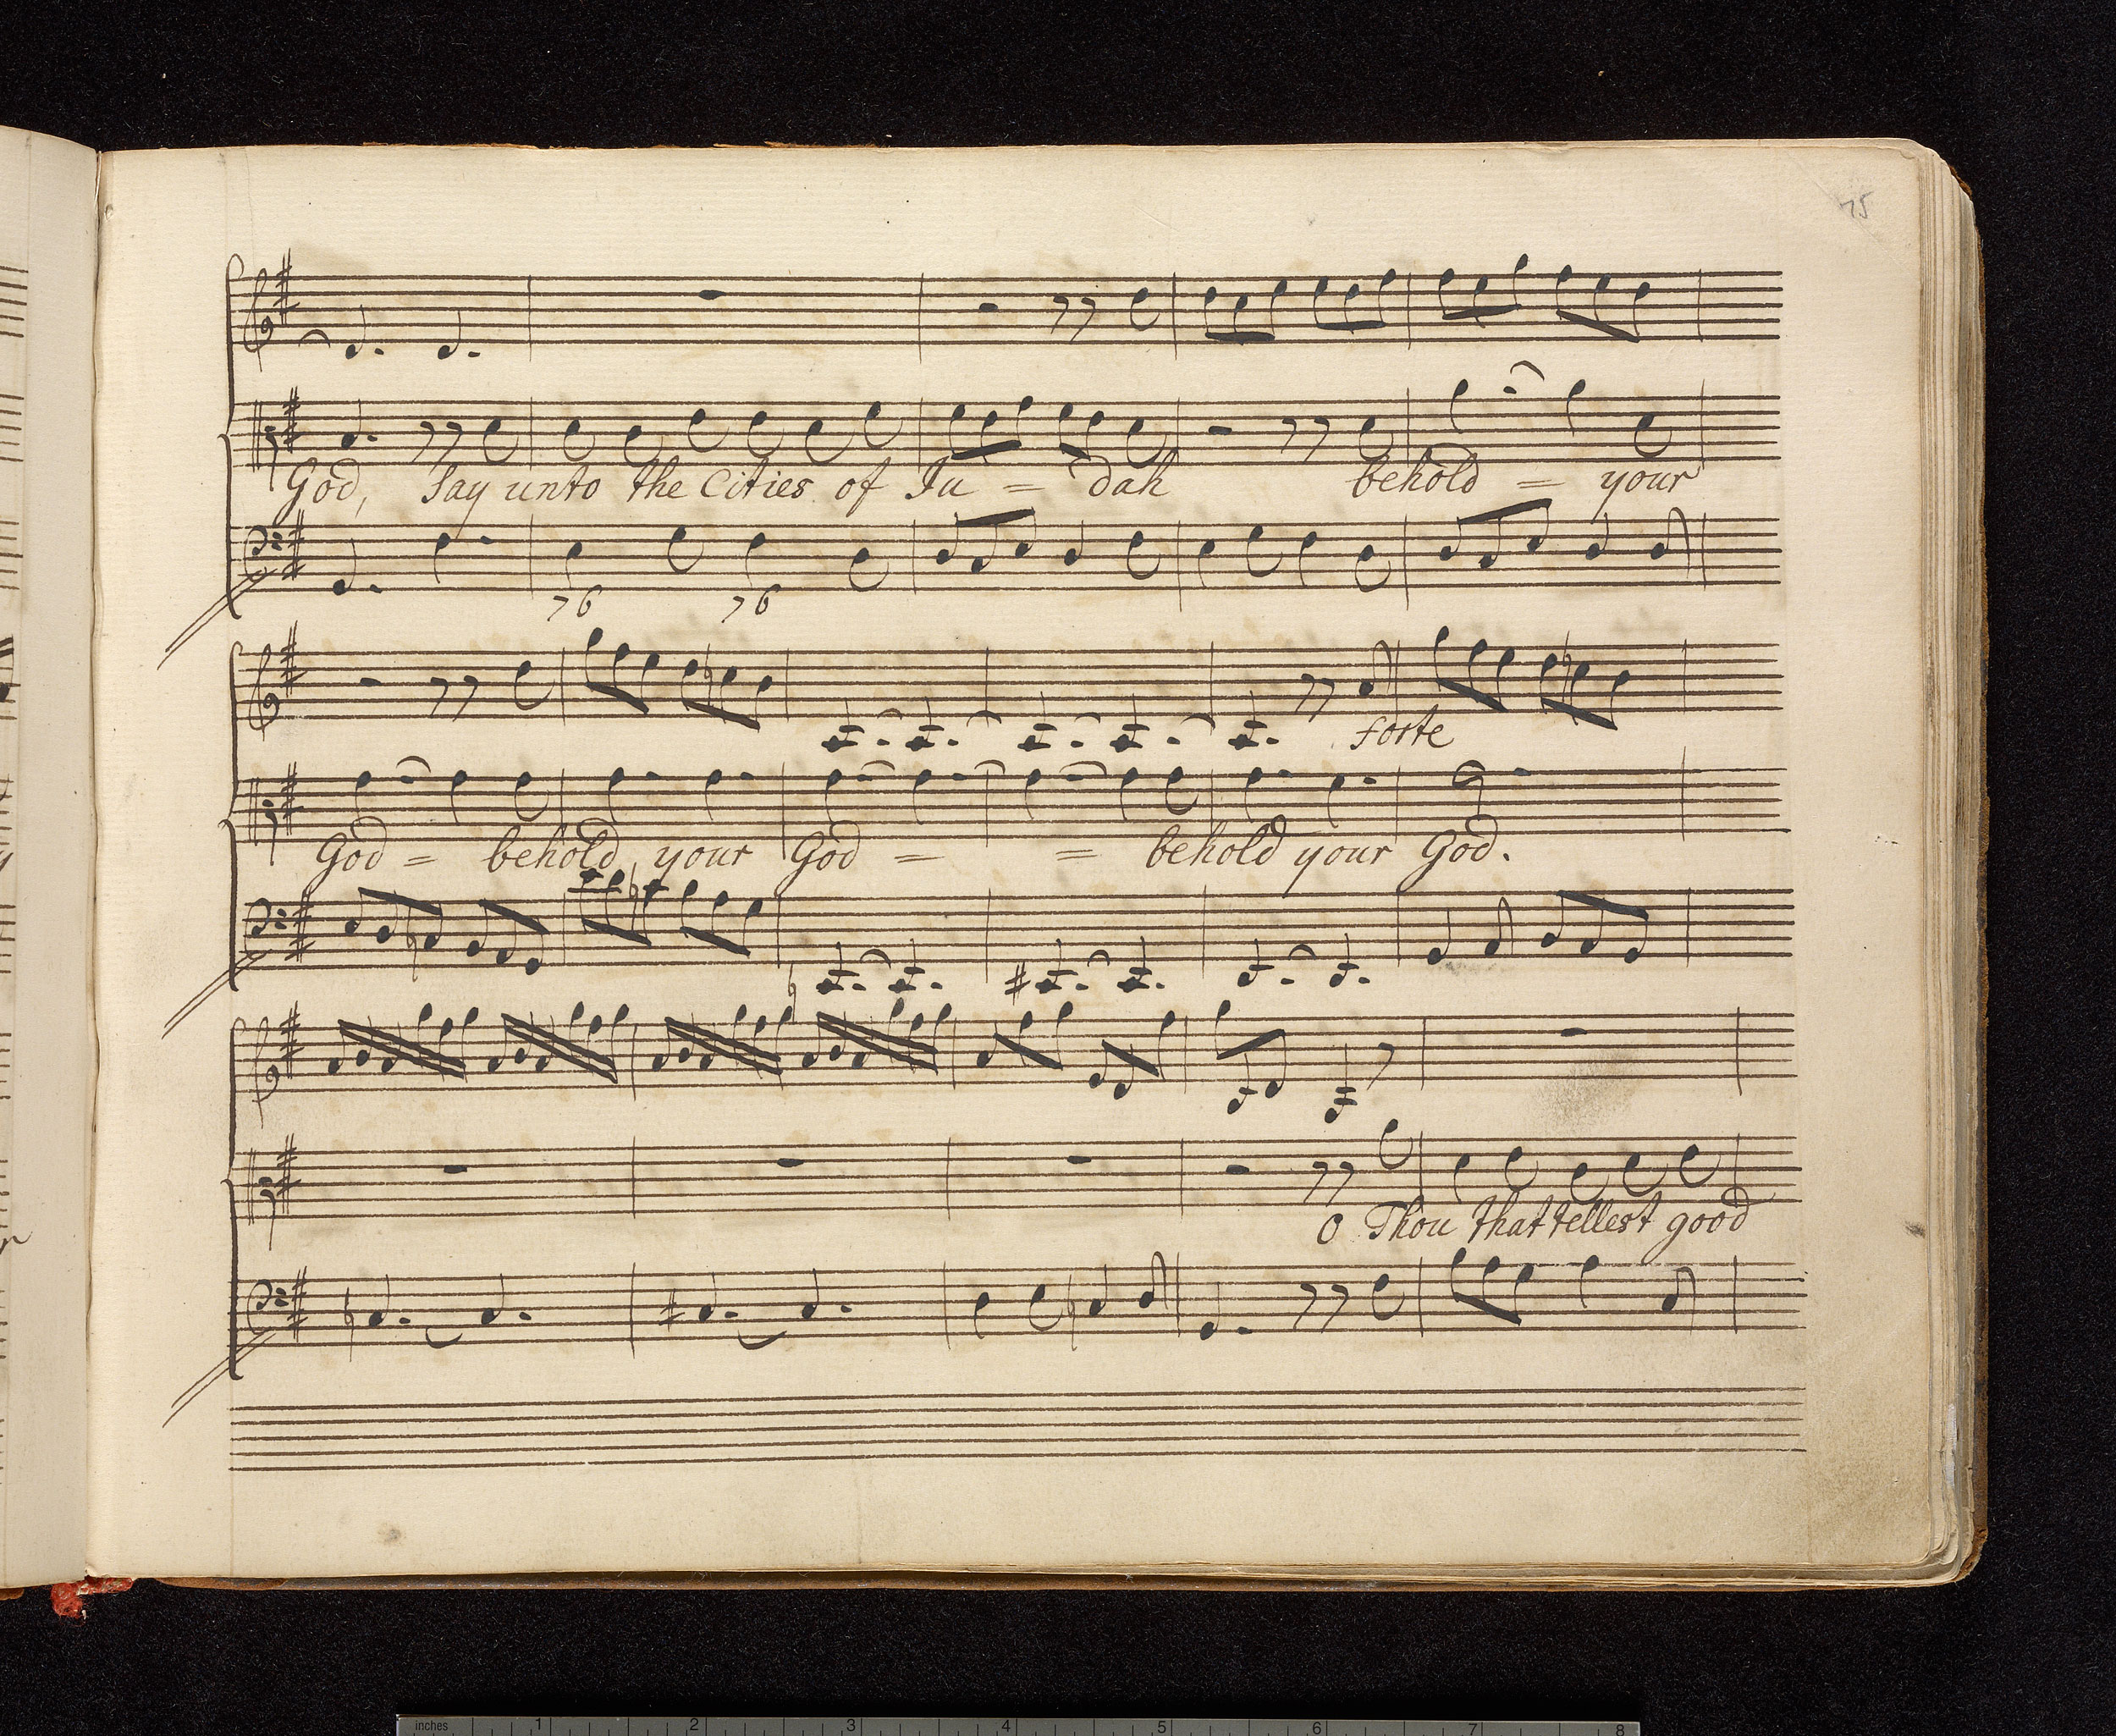 75
God, Say unto the Cities of Ju = dah behold = your
76 76
forte
God = behold your God = = behold your God.
O Thou that tellest good
inches 1 2 3 4 5 6 7 8